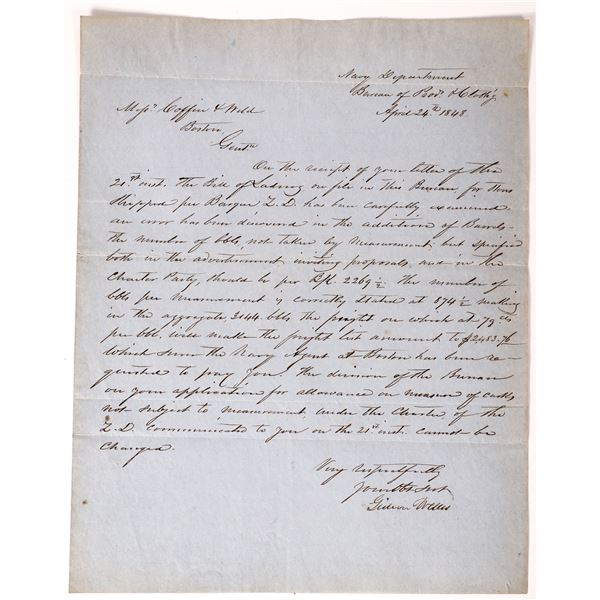 Navy Department
Bureau of Prov. & Cloth'g
April 24th 1848
Messrs. Coffin & Weld
Boston
Gentn
On the receipt of your letter of the
21st inst. the Bill of Lading on file in this Bureau for Stores
Shipped per Barque Z.D. has been carefully examined
an error has been discovered in the additions of Barrels.
The number of bbls, not taken by measurement, but specified
both in the advertisement inviting proposals, and in the
Charter Party, should be per B/L. 2269 1/2 the number of
bbls per measurement is correctly stated at 874 1/2 making
in the aggregate, 3144 bbls the freight on which at 79 cts
per bbl. will make the freight list amount to $2483.76
which sum the Navy Agent at Boston has been re-
quested to pay you. The decision of the Bureau
on your application for allowance on measure of casks
not subject to measurement, under the Charter of the
Z.D. communicated to you on the 21st inst. cannot be
changed.
Very respectfully
Your Obt Svt
Gideon Welles